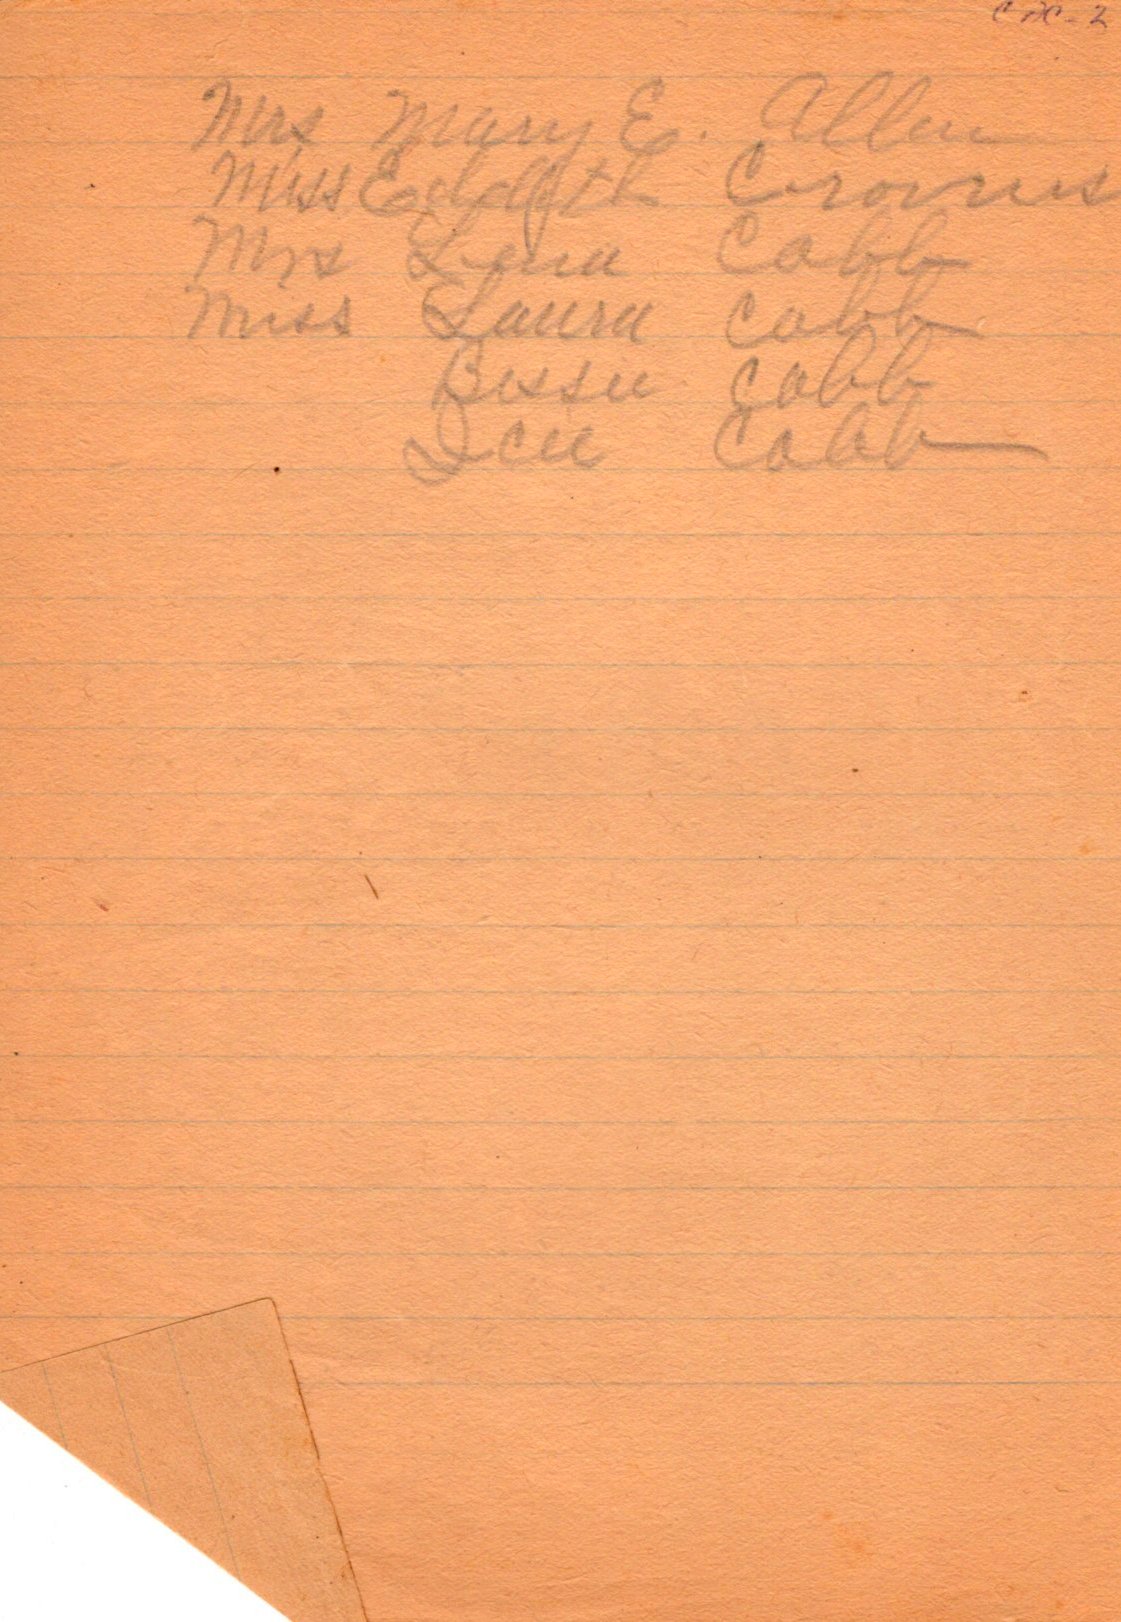 Mrs Mary E. Allen
Miss Edayth
Mrs Lena Cobb
Miss Laura Cobb
Bessie Cobb
Icie Cobb